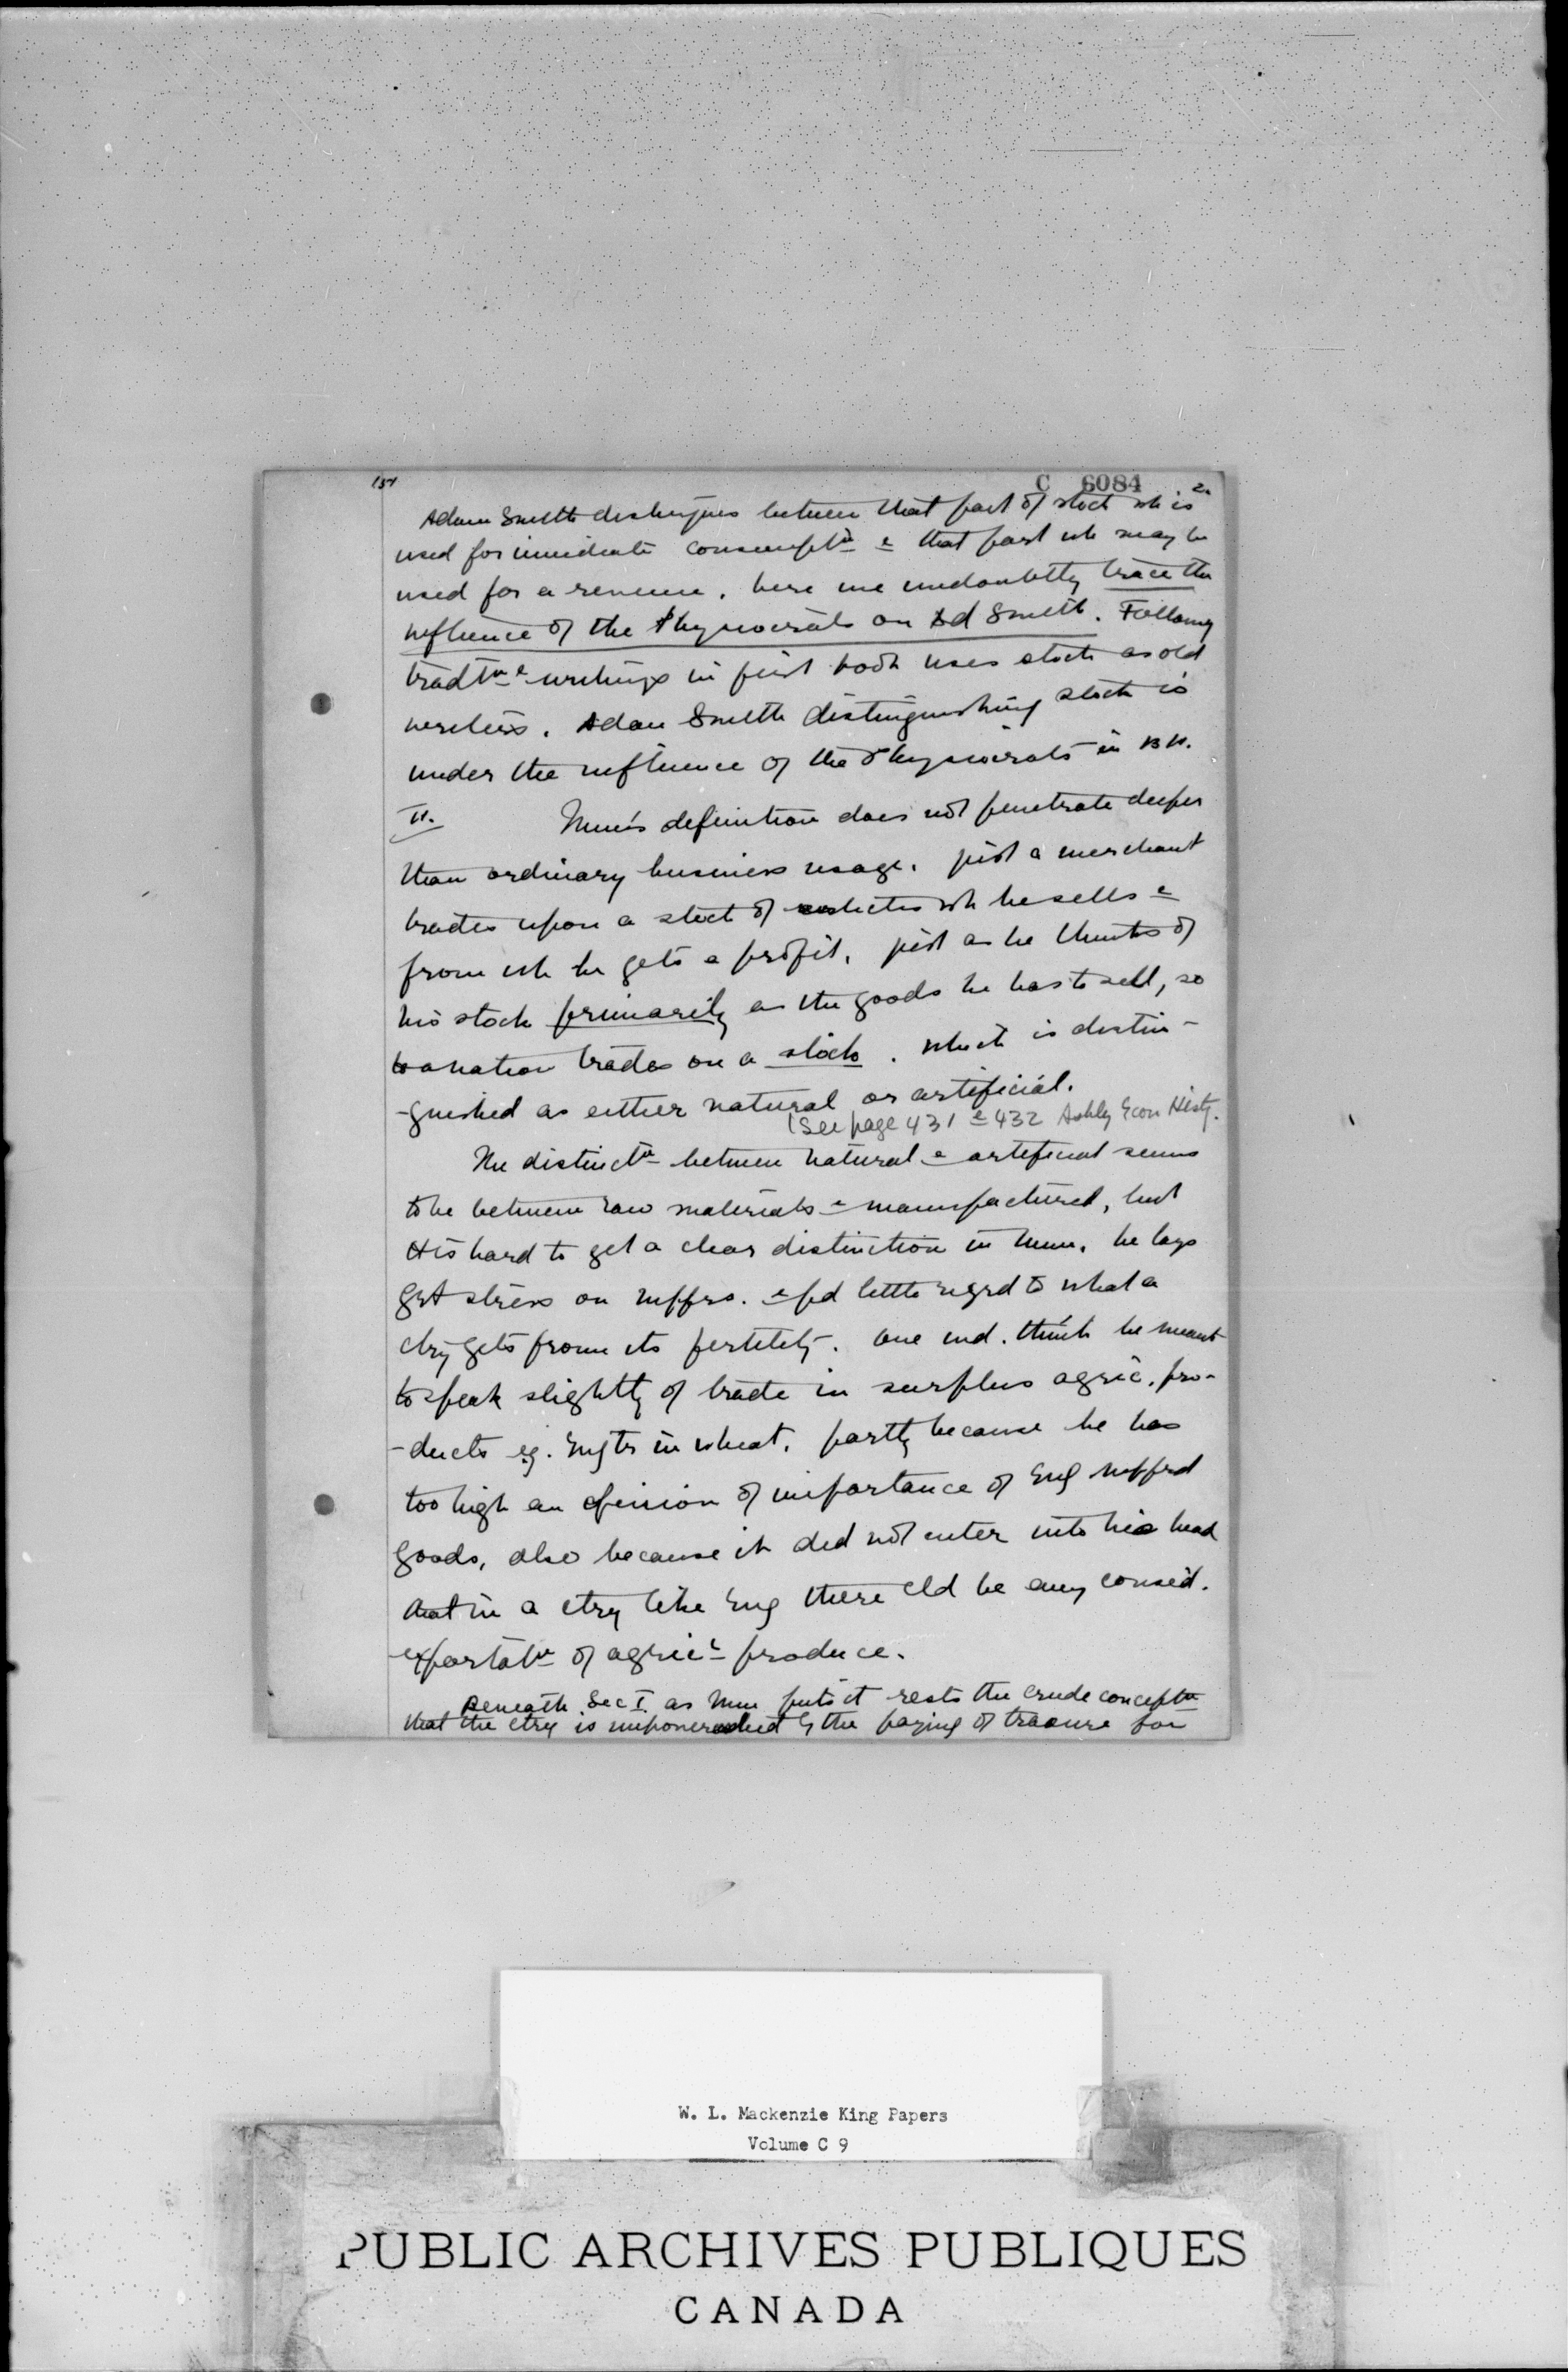 151 C 6084 2.
Adam Smith distinguishes between that part of stock wh is
used for immediate consumptn & that part wh may be
used for a revenue. here we undoubtedly trace the
influence of the Physiocrats on Ad Smith. Following
tradtn & writings in first book uses stock as old
writers. Adam Smith distinguishing stock is
under the influence of the Physiocrats in BK.
II. Mun's definition does not penetrate deeper
than ordinary business usage. just a merchant
trades upon a stock of wh he sells &
from wh he gets a profit, just as he thinks of
his stock primarily as the goods he has to sell, so
to a nation trades on a stock. which is distin-
-guished as either natural or artificial.
(See page 431 & 432 Ashley Econ Histy.
The distinctn between natural & artificial seems
to be between raw materials & manufactured, but
it is hard to get a clear distinction in Mun. he lays
grt stress on mffrs. & pd little regrd to what a
ctry gets from its fertility. One wd. think he meant
to speak slightly of trade in surplus agric. pro-
-ducts eg. in wheat. partly because he has
too high an opinion of importance of Eng mffrd
goods, also because it did not enter into his head
that in a ctry like Eng there cld be any consid.
exportatn of agricl produce.
Beneath Sec I. as Mun puts it rests the crude conceptn
that the ctry is impoverished by the paying of treasure for
W. L. Mackenzie King Papers
Volume C 9
PUBLIC ARCHIVES PUBLIQUES
CANADA